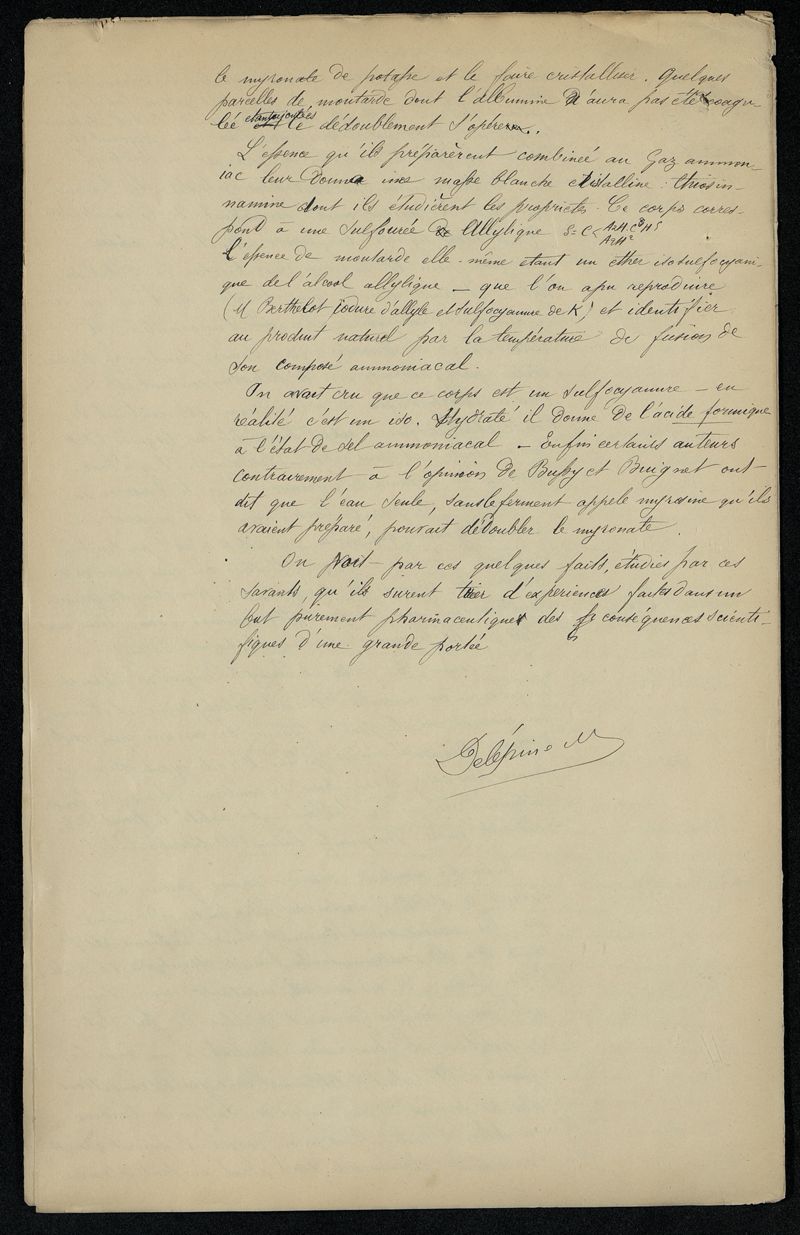 le myronate de potasse et le faire cristalliser. Quelques
parcelles de moutarde dont l'albumine n'aura pas été coagu
lée étant ajoutées le dédoublement s'opère.
L'essence qu'ils préparèrent combinée au Gaz ammon-
iac leur donna une masse blanche cristalline : thiosin-
namine dont ils étudièrent les propriétés. Ce corps corres-
pond à une sulfourée Allylique S=C< AzH.C³H⁵
AzH²
L'essence de moutarde elle-même étant un éther isosulfocyani-
que de l'alcool allylique — que l'on a pu reproduire
(M Berthelot iodure d'allyle et sulfocyanure de K) et identifier
au produit naturel par la température de fusion de
son composé ammoniacal.
On avait cru que ce corps est un sulfocyanure — en
réalité c'est un iso. Hydraté il donne de l'acide formique
à l'état de sel ammoniacal — Enfin certains auteurs
contrairement à l'opinion de Bussy et Buignet ont
dit que l'eau seule, sans le ferment appelé myrosine qu'ils
avaient préparé, pouvait dédoubler le myronate.
On voit par ces quelques faits, étudiés par ces
savants, qu'ils surent tirer d'expériences faites dans un
but purement pharmaceutique des conséquences scienti-
fiques d'une grande portée
Delépine M